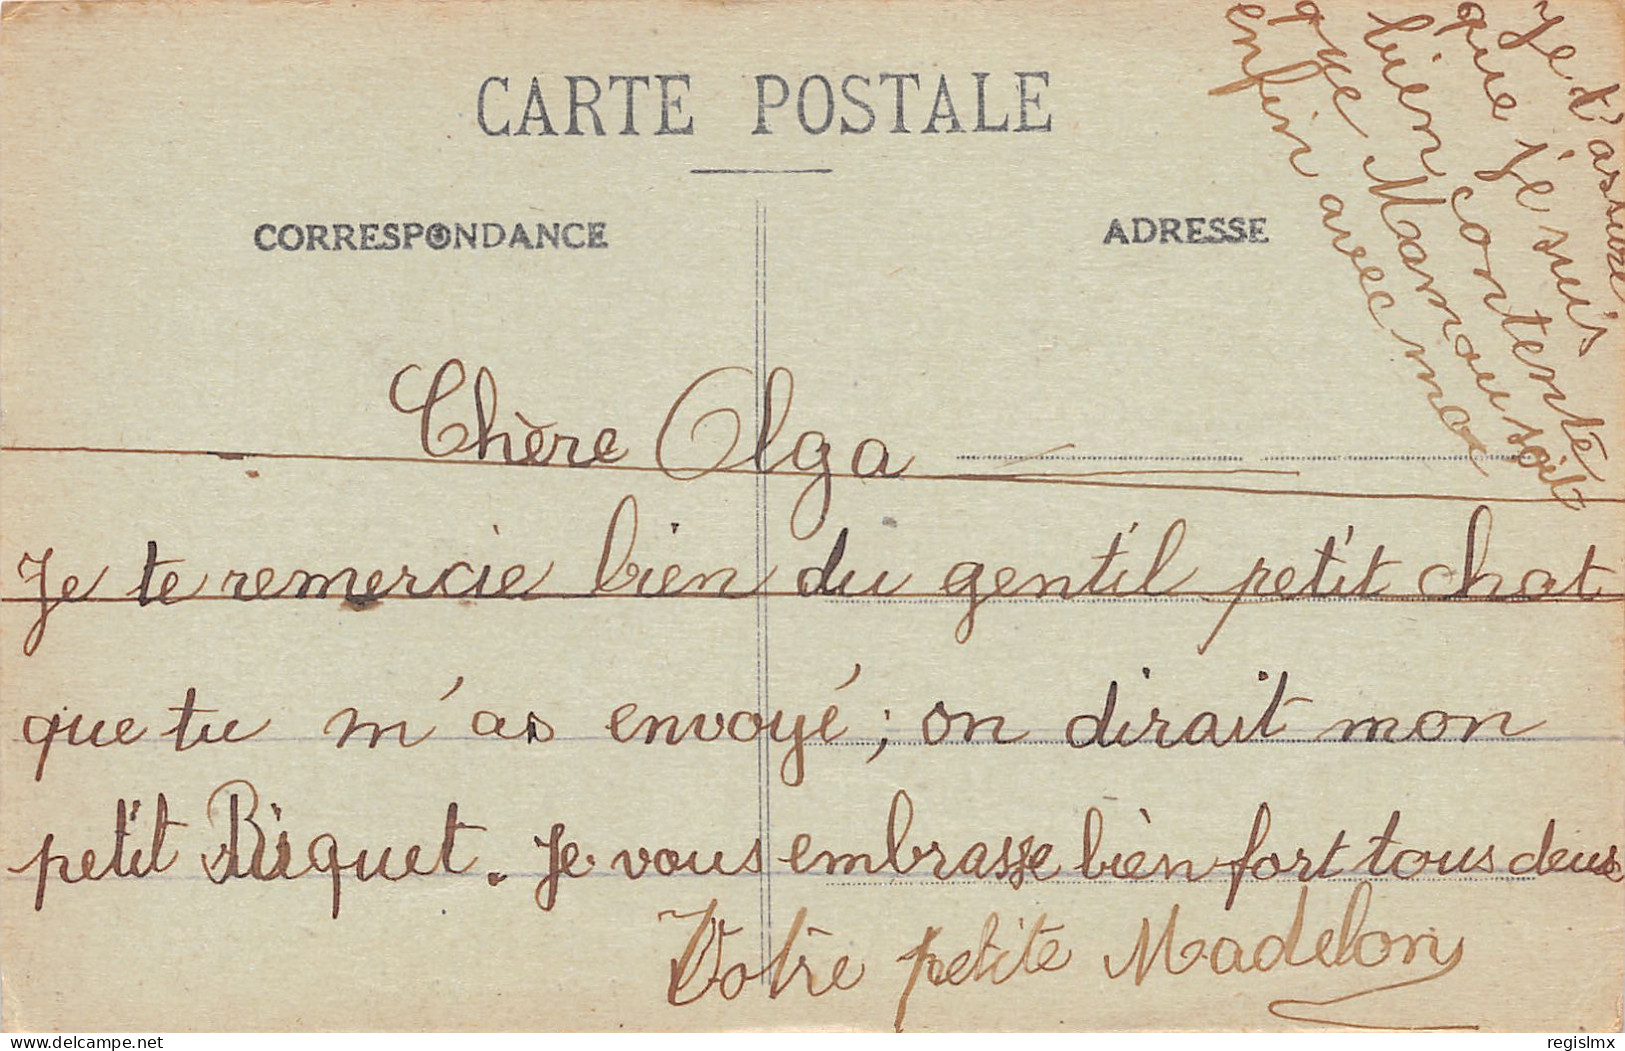 CARTE POSTALE
CORRESPONDANCE
ADRESSE
Chère Olga
Je te remercie bien du gentil petit chat
que tu m'as envoyé ; on dirait mon
petit Riquet. Je vous embrasse bien fort tous deux
Votre petite Madelon
Je t'assure
que je suis
bien contente
que Mamou soit
enfin avec moi
delcampe.net
regislmx